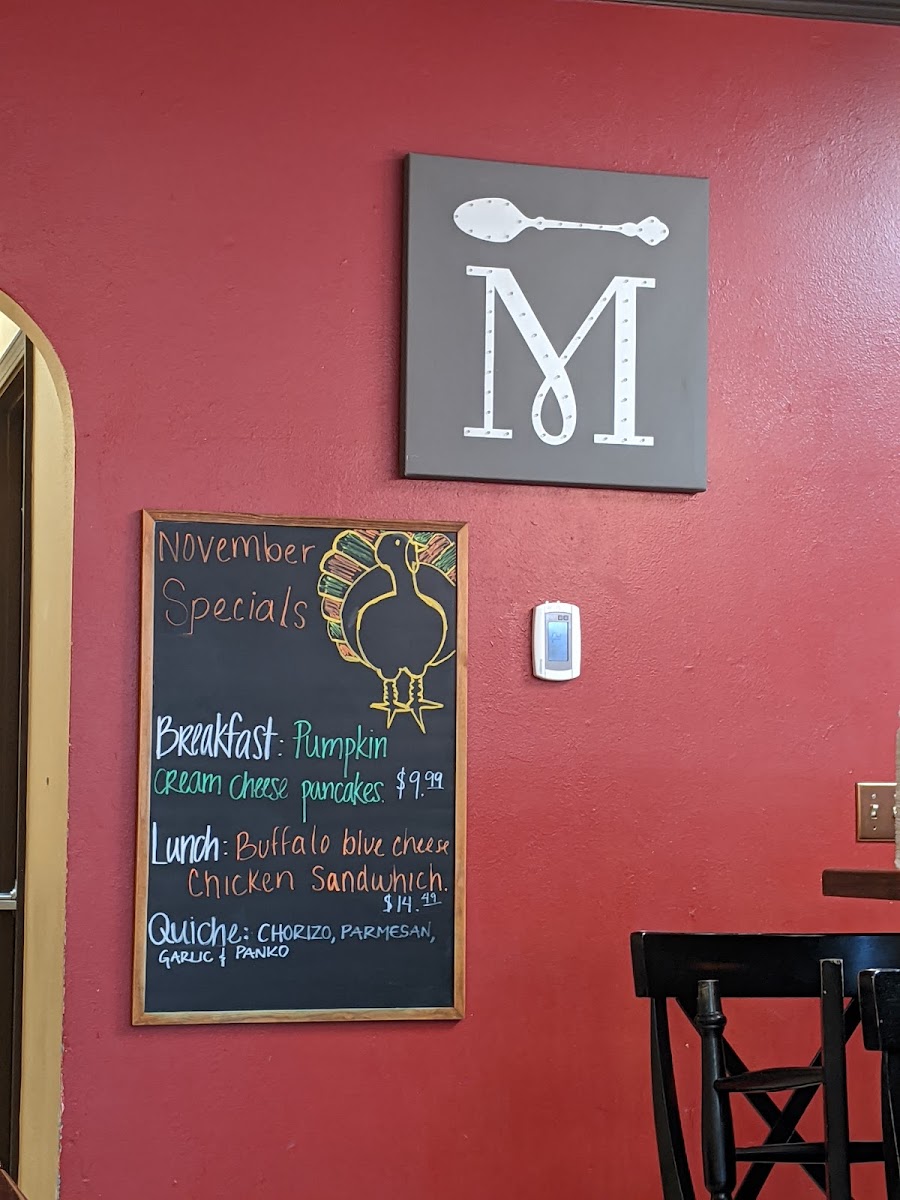 M
November
Specials
Breakfast: Pumpkin
cream cheese pancakes. $9.99
Lunch: Buffalo blue cheese
Chicken Sandwhich.
$14.49
Quiche: CHORIZO, PARMESAN,
GARLIC & PANKO